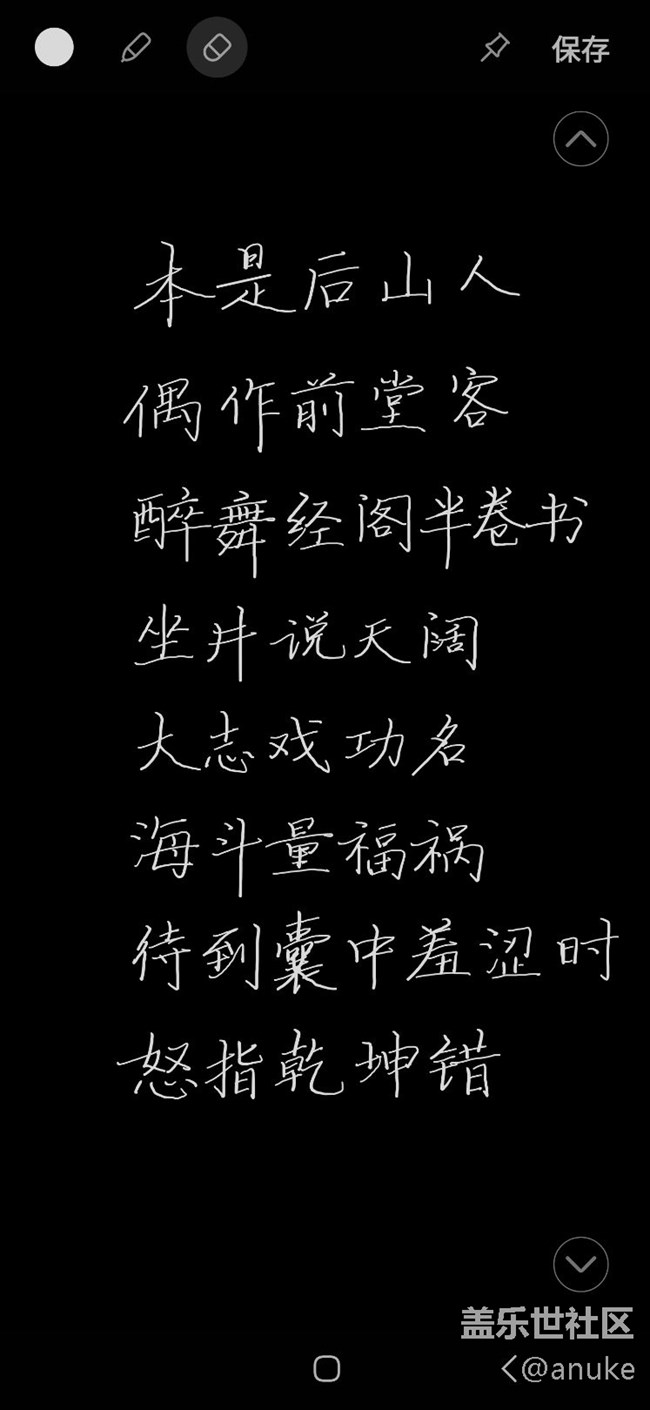 保存
本是后山人
偶作前堂客
醉舞经阁半卷书
坐井说天阔
大志戏功名
海斗量福祸
待到囊中羞涩时
怒指乾坤错
盖乐世社区
@anuke